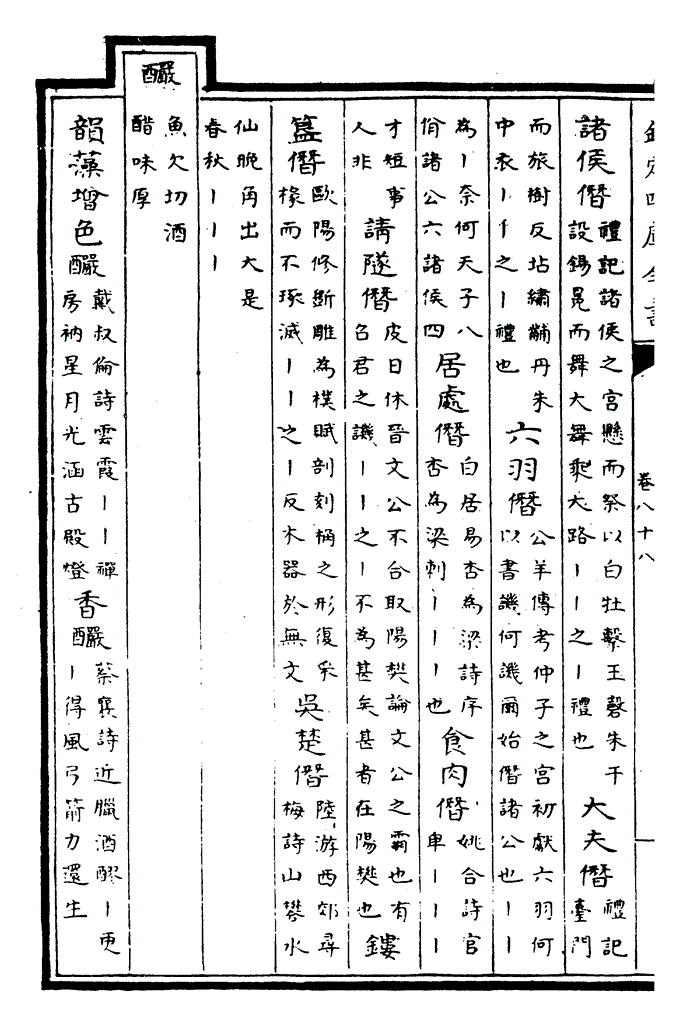 欽定四庫全書 卷八十八
諸侯僭 禮記諸侯之宮懸而祭以白牡擊玉磬朱干設錫冕而舞大舞乘大路丨丨之丨禮也 大夫僭 禮記臺門
而旅樹反坫繡黼丹朱中衣丨丨之丨禮也 六羽僭 公羊傳考仲子之宮初獻六羽何以書譏何譏爾始僭諸公也丨丨
為丨奈何天子八佾諸公六諸侯四 居處僭 白居易杏為梁詩序杏為梁刺丨丨丨也 食肉僭 姚合詩官卑丨丨丨
才短事人非 請隧僭 皮日休晉文公不合取陽樊論文公之霸也有召君之譏丨丨之丨不為甚矣甚者在陽樊也 鏤
簋僭 歐陽修斲雕為樸賦剖刻桷之形復采椽而不琢滅丨丨之丨反木器於無文 吳楚僭 陸游西郊尋梅詩山礬水
仙晚角出大是春秋丨丨丨
釅 魚欠切酒醋味厚
韻藻增 色釅 戴叔倫詩雲霞丨丨禪房衲星月光涵古殿燈 香釅 蔡襄詩近臘酒醪丨更丨得風弓箭力還生